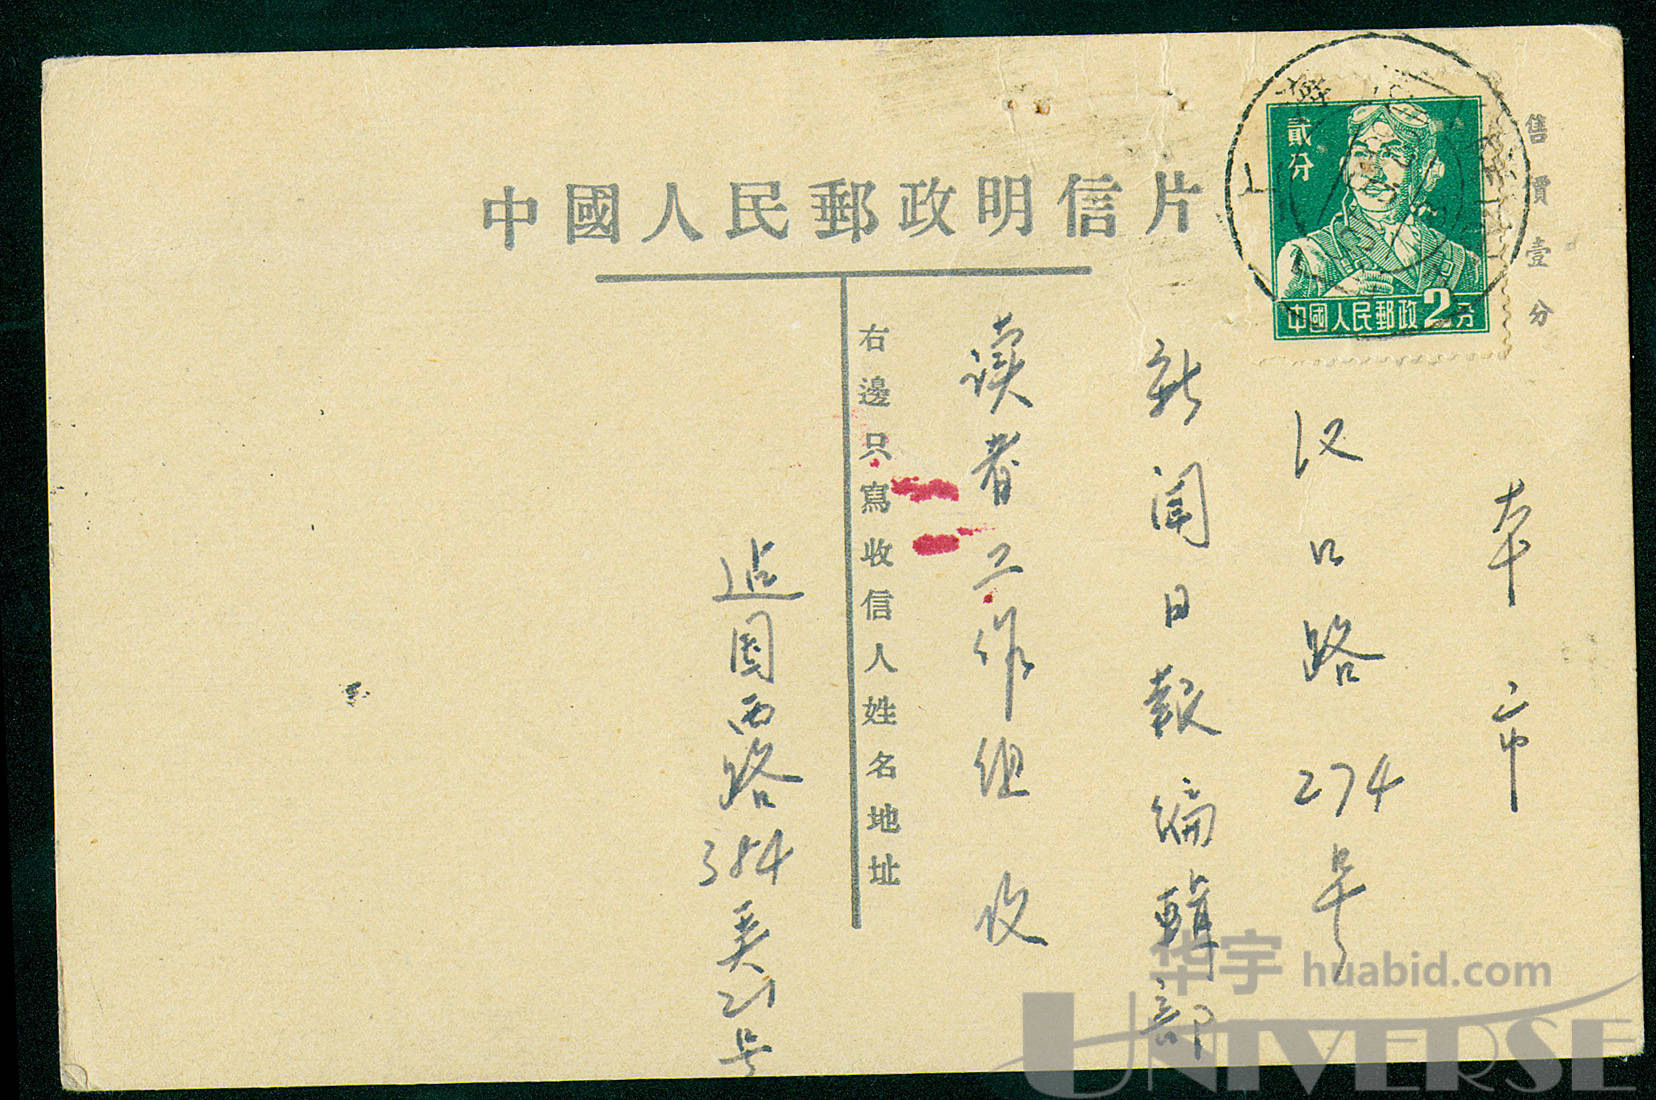 中國人民郵政明信片
售價壹分
貳分
中國人民郵政2分
上海
右邊只寫收信人姓名地址
本市
汉口路274号
新闻日報编輯部
读者工作组 收
西路384弄21号
华宇 huabid.com
UNIVERSE